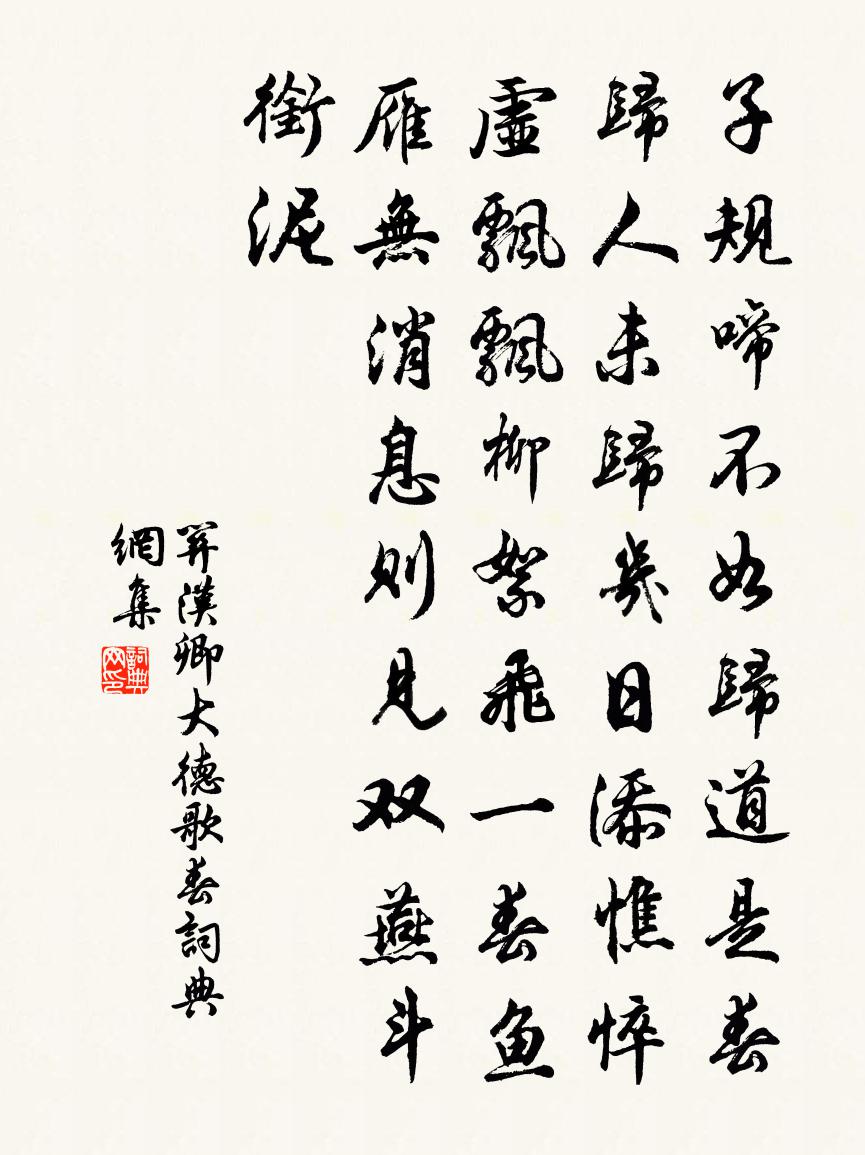 子規啼不如歸道是春
歸人未歸幾日添憔悴
虛飄飄柳絮飛一春魚
雁無消息則見双燕斗
銜泥
關漢卿大德歌春詞典
網集
詞典
网印